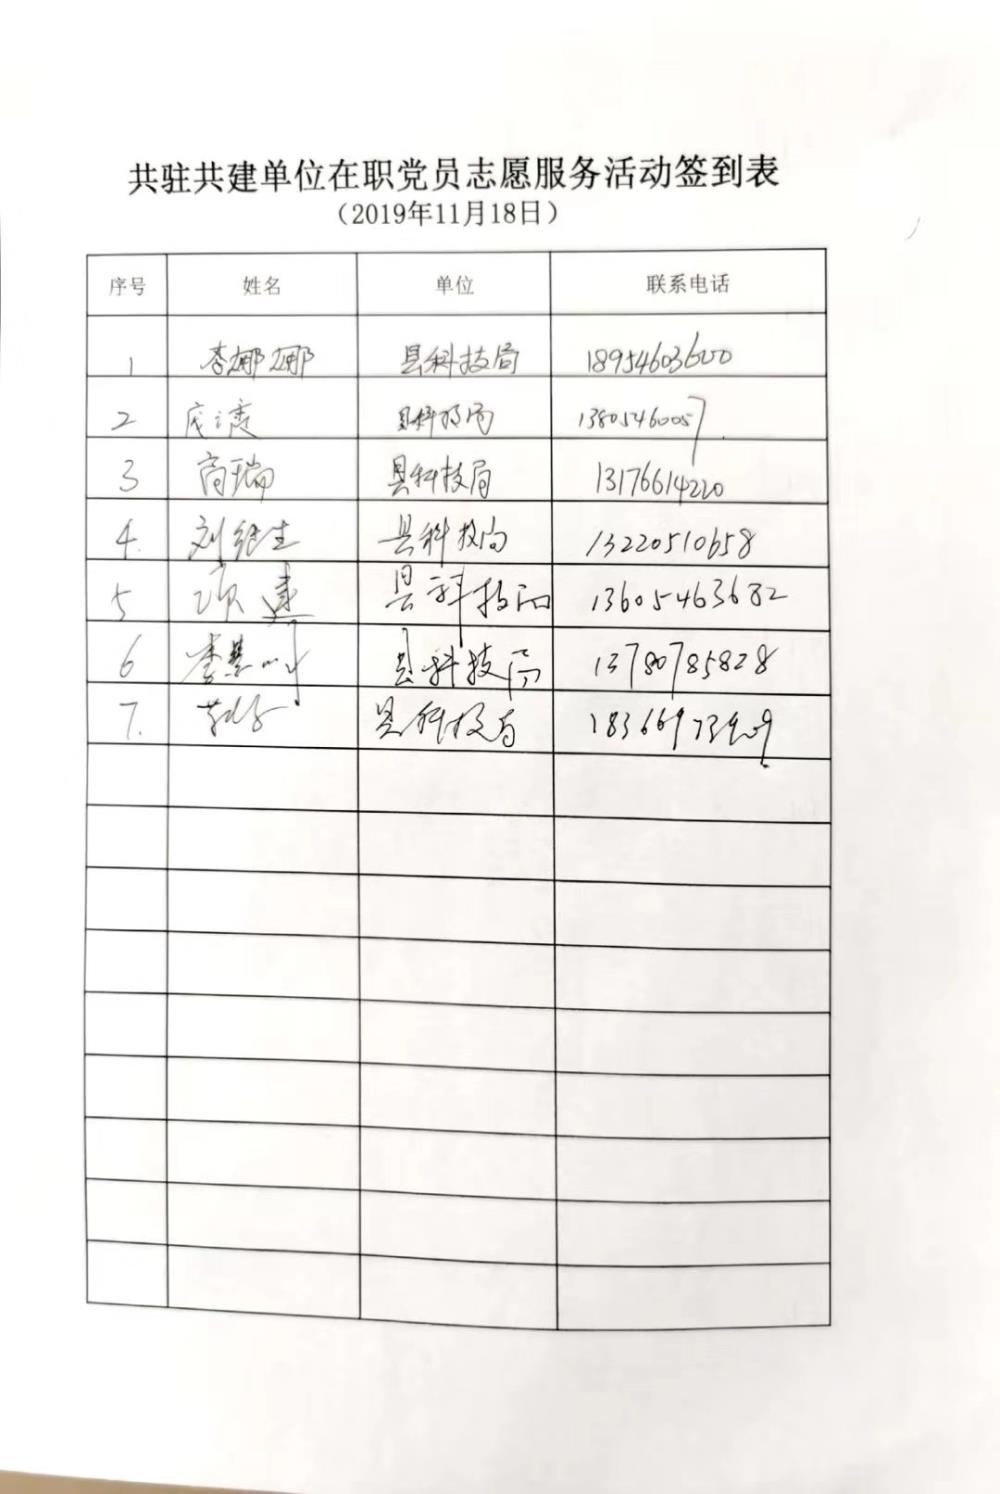 共驻共建单位在职党员志愿服务活动签到表
（2019年11月18日）
序号 姓名 单位 联系电话
1 李娜娜 县科技局 18954603600
2 县科技局 13805460057
3 商瑞 县科技局 13176614220
4. 刘继生 县科技局 13220510658
5 项建 县科技局 13605463682
6 李慧明 县科技局 13780785828
7. 县科技局